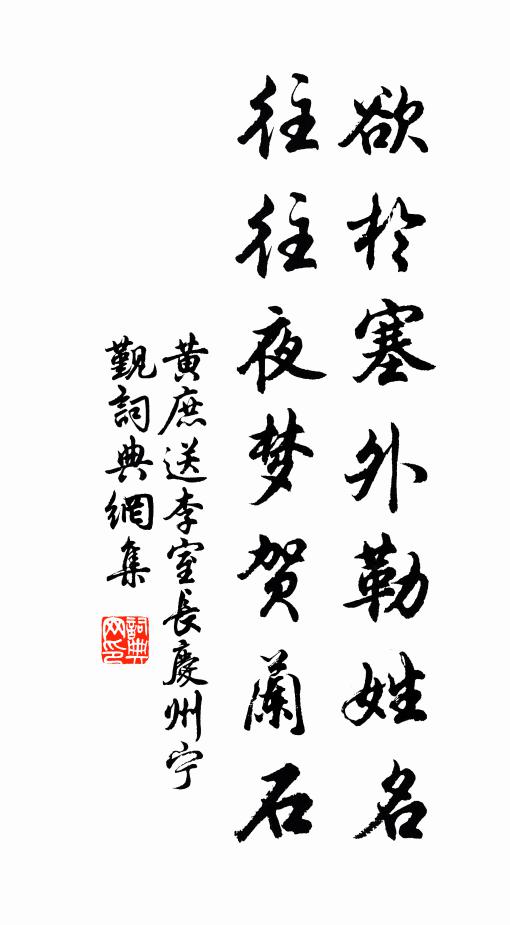 欲於塞外勒姓名
往往夜梦贺蘭石
黄庶送李室長慶州宁
觐詞典網集
詞典网印